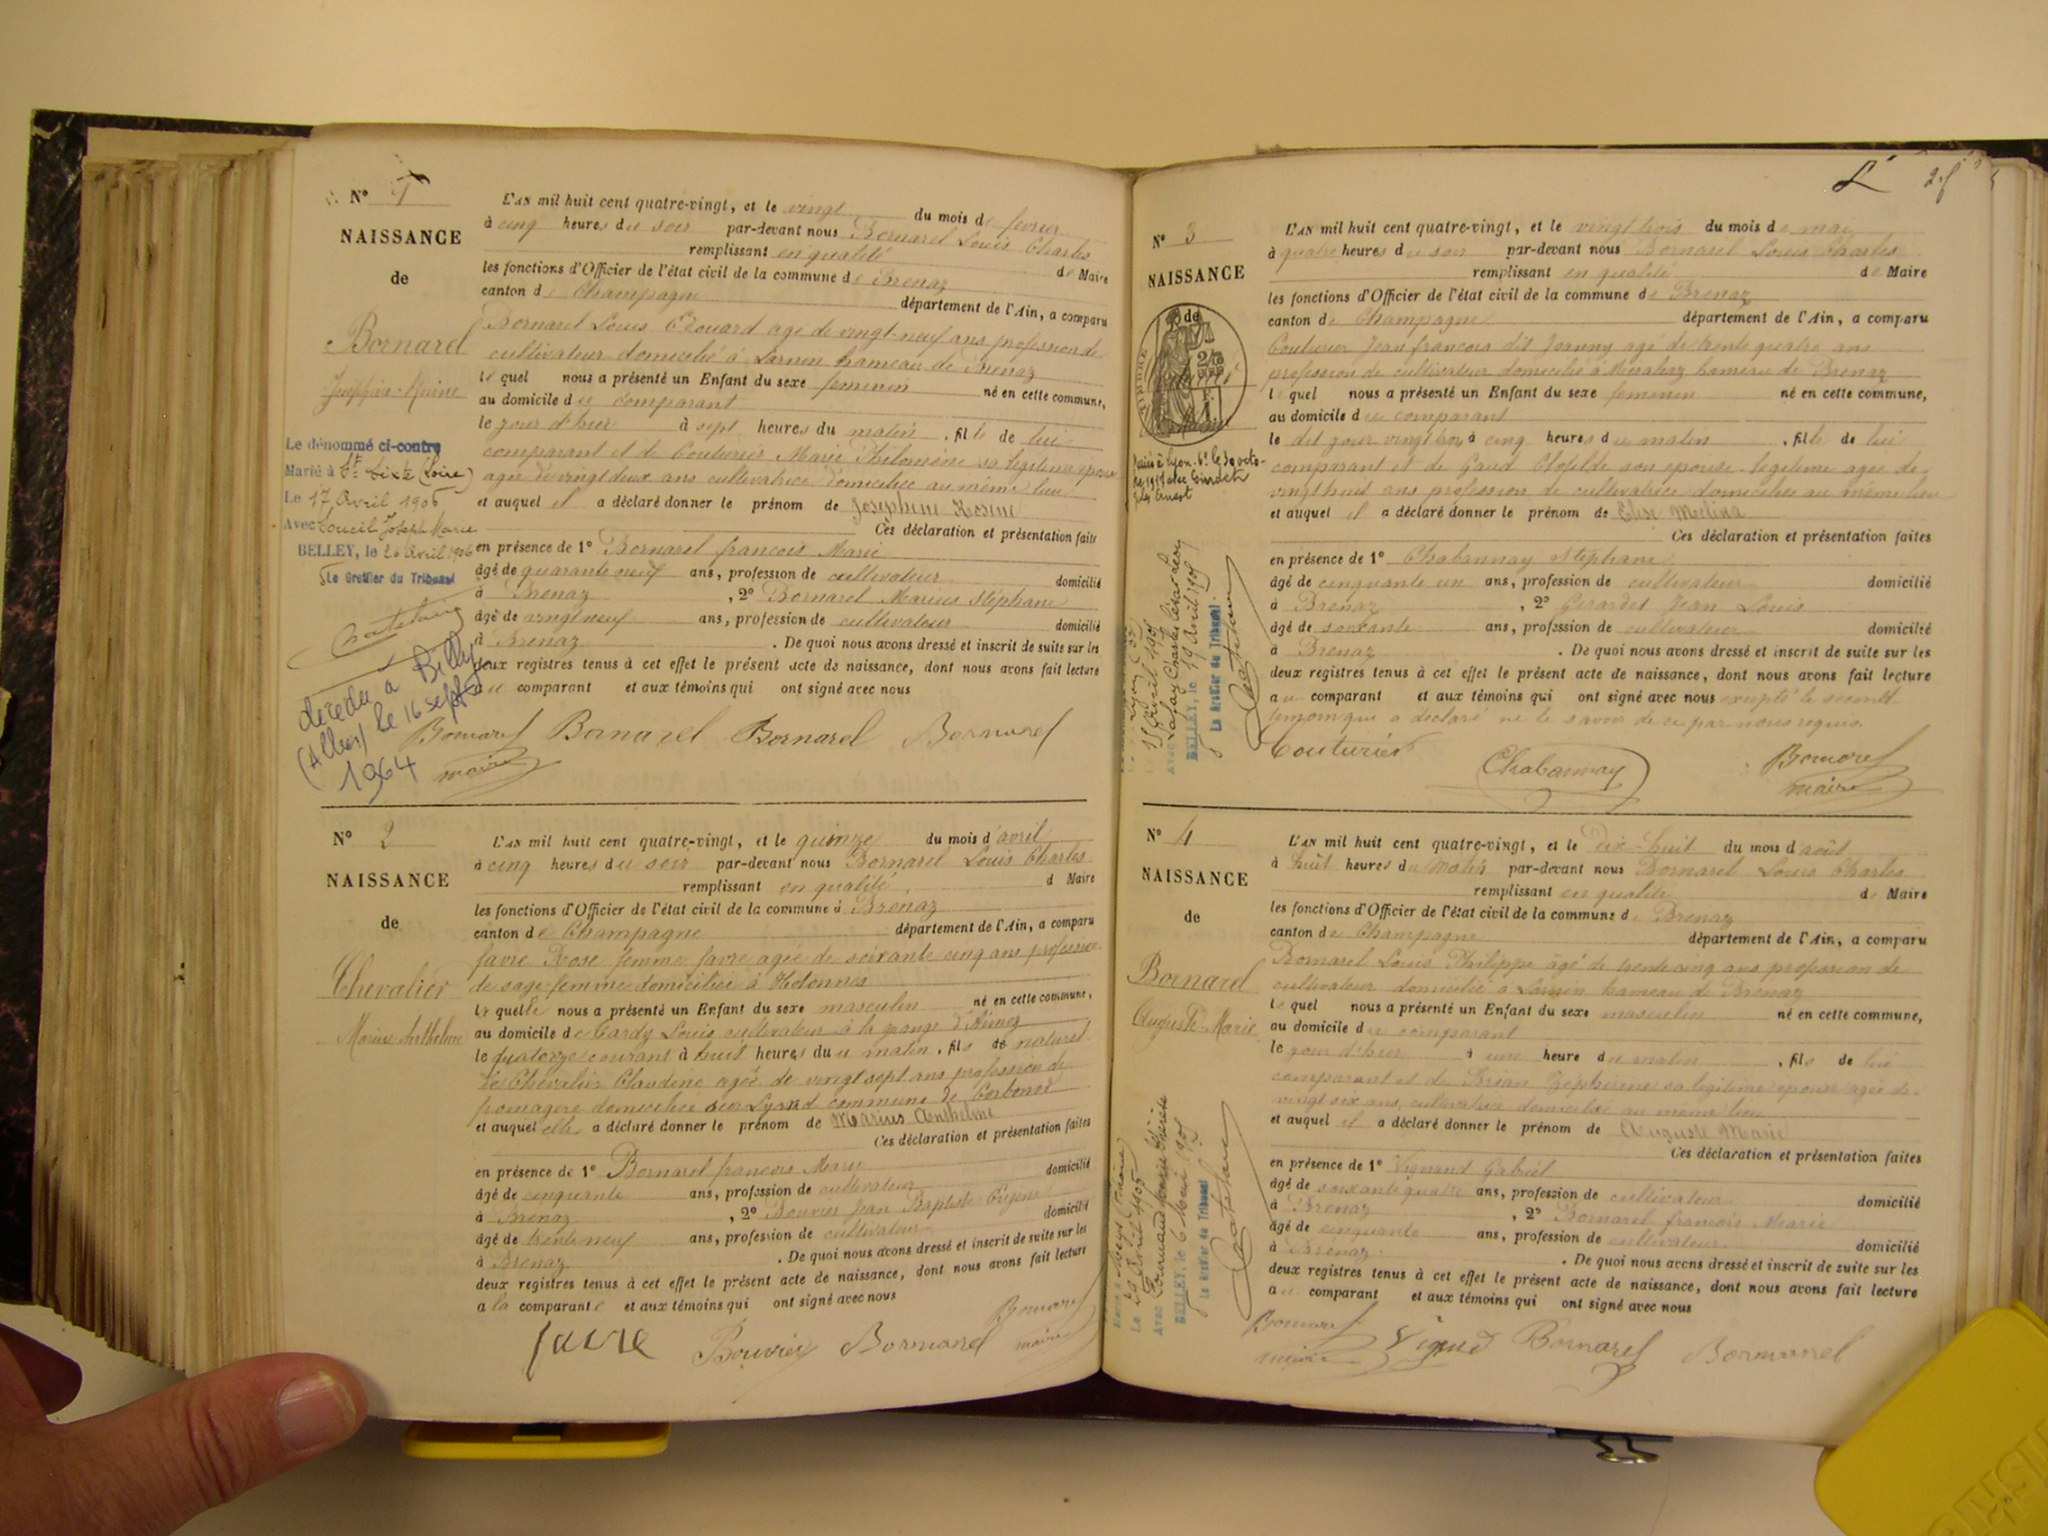 N° 1
NAISSANCE
de
Bornarel
Joséphine-Rosine
Le dénommé ci-contre
Marié à St Sixte (Loire)
Le 17 Avril 1906
Avec Joseph Marie
BELLEY, le 26 Avril 1906
Le Greffier du Tribunal
décédée à Billy
(Allier) le 16 sept
1964
L'AN mil huit cent quatre-vingt, et le vingt du mois de fevrier
à cinq heures du soir par-devant nous Bornarel Louis Charles
remplissant en qualité de Maire
les fonctions d'Officier de l'état civil de la commune de Brenaz
canton de Champagne département de l'Ain, a comparu
Bornarel Louis Edouard agé de vingt-neuf ans profession de
cultivateur domicilié à hameau de Brenaz
le quel nous a présenté un Enfant du sexe feminin né en cette commune,
au domicile du comparant
le jour d'hier à sept heures du matin, fille de lui
comparant et de Couturier Marie Philomène sa légitime épouse
agée de vingt deux ans cultivatrice domiciliée au même lieu
et auquel il a déclaré donner le prénom de Joséphine Rosine
Ces déclaration et présentation faites
en présence de 1° Bornarel françois Marie
âgé de quarante neuf ans, profession de cultivateur domicilié
à Brenaz, 2° Bornarel Marius Stéphane
âgé de vingt neuf ans, profession de cultivateur domicilié
à Brenaz. De quoi nous avons dressé et inscrit de suite sur les
deux registres tenus à cet effet le présent acte de naissance, dont nous avons fait lecture
au comparant et aux témoins qui ont signé avec nous
Bornarel Bornarel Bornarel Bornarel
maire
N° 2
NAISSANCE
de
Chevalier
Marius Anthelme
L'AN mil huit cent quatre-vingt, et le quinze du mois d'avril
à cinq heures du soir par-devant nous Bornarel Louis Charles
remplissant en qualité d Maire
les fonctions d'Officier de l'état civil de la commune d Brenaz
canton de Champagne département de l'Ain, a comparu
favre Rose femme favre agée de soixante cinq ans profession
de sage femme domiciliée à Hotonnes
le quelle nous a présenté un Enfant du sexe masculin né en cette commune,
au domicile de Tardy Louis cultivateur à la grange
le quatorze courant à huit heures du matin, fils de naturel
de Chevalier Claudine agée de vingt sept ans profession de
domiciliée commune de
et auquel elle a déclaré donner le prénom de Marius Anthelme
Ces déclaration et présentation faites
en présence de 1° Bornarel françois Marie domicilié
âgé de cinquante ans, profession de cultivateur
à Brenaz, 2° Bouvier Jean Baptiste domicilié
âgé de trente neuf ans, profession de cultivateur
à Brenaz. De quoi nous avons dressé et inscrit de suite sur les
deux registres tenus à cet effet le présent acte de naissance, dont nous avons fait lecture
a la comparante et aux témoins qui ont signé avec nous
favre Bouvier Bornarel Bornarel
maire
N° 3
NAISSANCE
de
L'AN mil huit cent quatre-vingt, et le vingt trois du mois de mai
à quatre heures du soir par-devant nous Bornarel Louis Charles
remplissant en qualité de Maire
les fonctions d'Officier de l'état civil de la commune de Brenaz
canton de Champagne département de l'Ain, a comparu
Couturier Jean françois dit Joanny agé de trente quatre ans
profession de cultivateur domicilié à hameau de Brenaz
le quel nous a présenté un Enfant du sexe feminin né en cette commune,
au domicile du comparant
le dit jour vingt trois à cinq heures du matin, fille de lui
comparant et de Clotilde son épouse légitime agée de
vingt huit ans profession de cultivatrice domiciliée au même lieu
et auquel il a déclaré donner le prénom de Elise Melina
Ces déclaration et présentation faites
en présence de 1° Chabannay Stéphane
âgé de cinquante un ans, profession de cultivateur domicilié
à Brenaz, 2° Girardet Jean Louis
âgé de soixante ans, profession de cultivateur domicilié
à Brenaz. De quoi nous avons dressé et inscrit de suite sur les
deux registres tenus à cet effet le présent acte de naissance, dont nous avons fait lecture
au comparant et aux témoins qui ont signé avec nous excepté le second
temoin qui a déclaré ne le savoir de ce par nous requis.
Couturier Chabannay Bornarel
maire
BELLEY, le 19 Avril 1905
Le Greffier du Tribunal
N° 4
NAISSANCE
de
Bornarel
Auguste-Marie
L'AN mil huit cent quatre-vingt, et le Dix-huit du mois d'août
à huit heures du matin par-devant nous Bornarel Louis Charles
remplissant en qualité de Maire
les fonctions d'Officier de l'état civil de la commune de Brenaz
canton de Champagne département de l'Ain, a comparu
Bornarel Louis Philippe âgé de trente cinq ans profession de
cultivateur domicilié à hameau de Brenaz
le quel nous a présenté un Enfant du sexe masculin né en cette commune,
au domicile du comparant
le jour d'hier à une heure du matin, fils de lui
comparant et de Brian sa légitime épouse agée de
vingt six ans, cultivatrice domiciliée au même lieu
et auquel il a déclaré donner le prénom de Auguste Marie
Ces déclaration et présentation faites
en présence de 1° Vignand Gabriel
âgé de soixante quatre ans, profession de cultivateur domicilié
à Brenaz, 2° Bornarel françois Marie
âgé de cinquante ans, profession de cultivateur domicilié
à Brenaz. De quoi nous avons dressé et inscrit de suite sur les
deux registres tenus à cet effet le présent acte de naissance, dont nous avons fait lecture
au comparant et aux témoins qui ont signé avec nous
Bornarel Bornarel Bornarel
maire
BELLEY, le 6 Mai 1905
Le Greffier du Tribunal